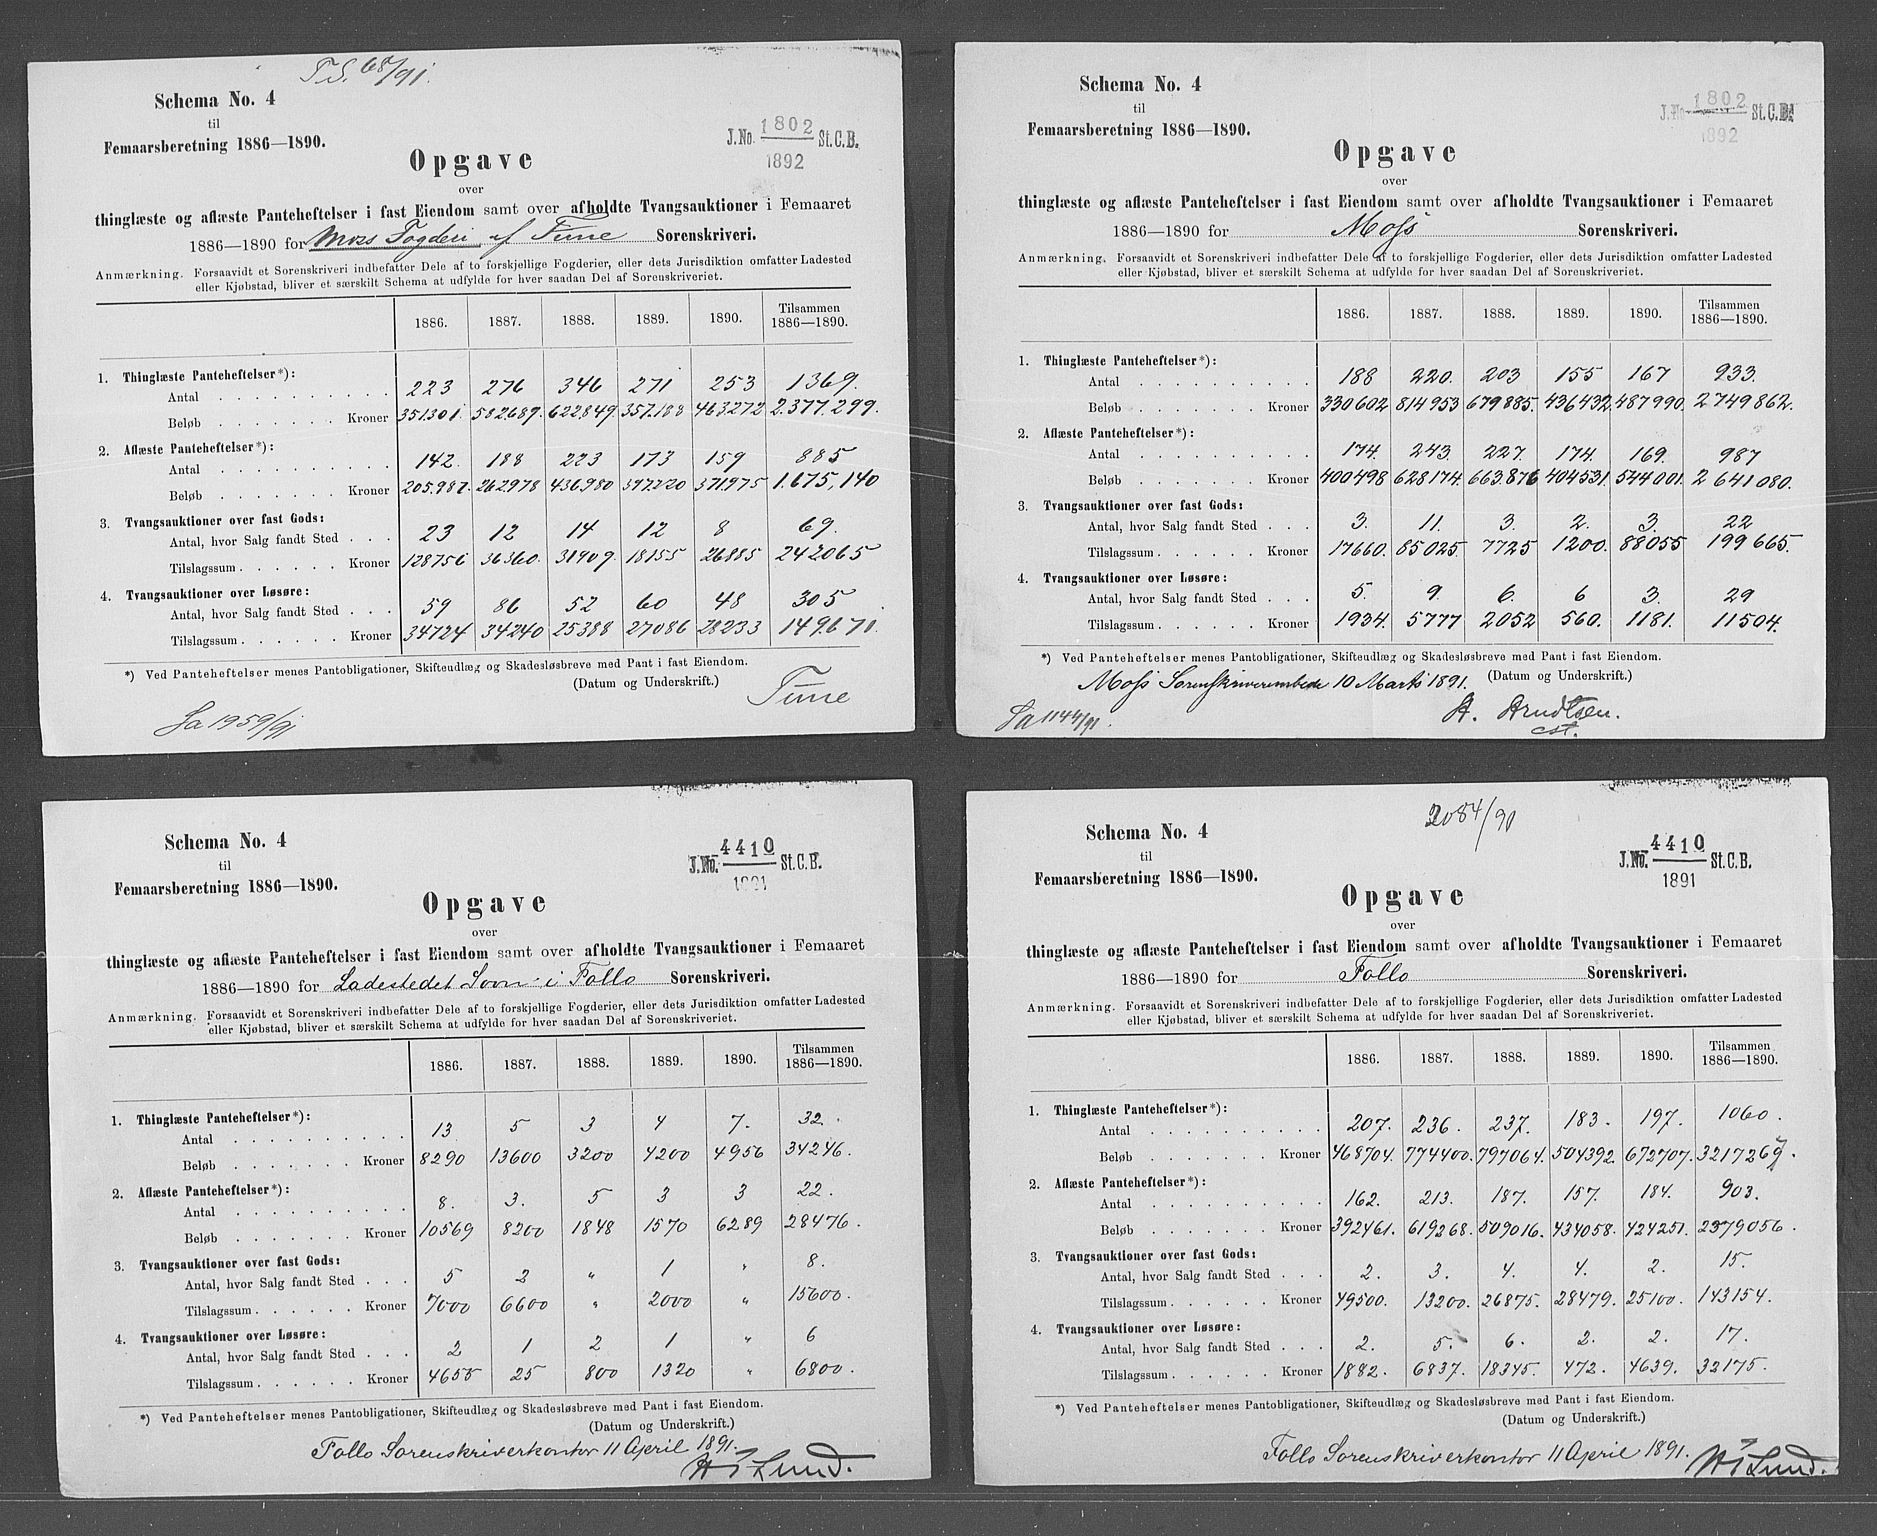 T.S. 68/91.
Schema No. 4
til
Femaarsberetning 1886—1890.
J.No. 1802/1892 St.C.B.
Opgave
over
thinglæste og aflæste Panteheftelser i fast Eiendom samt over afholdte Tvangsauktioner i Femaaret
1886—1890 for Moss Fogderi af Tune Sorenskriveri.
Anmærkning. Forsaavidt et Sorenskriveri indbefatter Dele af to forskjellige Fogderier, eller dets Jurisdiktion omfatter Ladested
eller Kjøbstad, bliver et særskilt Schema at udfylde for hver saadan Del af Sorenskriveriet.
1886. 1887. 1888. 1889. 1890. Tilsammen 1886—1890.
1. Thinglæste Panteheftelser*):
Antal 223 276 346 271 253 1369.
Beløb Kroner 351301. 582689. 622849. 357188 463272 2.377.299.
2. Aflæste Panteheftelser*):
Antal 142. 188 223 173 159 885
Beløb Kroner 205.987. 262978 436980 397220 371975 1.675,140
3. Tvangsauktioner over fast Gods:
Antal, hvor Salg fandt Sted 23 12 14 12 8 69.
Tilslagssum Kroner 128756 36360. 31909. 18155 26885 242065
4. Tvangsauktioner over Løsøre:
Antal, hvor Salg fandt Sted 59 86 52 60 48 305
Tilslagssum Kroner 34724 34240 25388 27086 28233 149.671.
*) Ved Panteheftelser menes Pantobligationer, Skifteudlæg og Skadesløsbreve med Pant i fast Eiendom.
(Datum og Underskrift.)
Tune
Sa 1959/91
Schema No. 4
til
Femaarsberetning 1886—1890.
J.No. 1802/1892 St.C.B.
Opgave
over
thinglæste og aflæste Panteheftelser i fast Eiendom samt over afholdte Tvangsauktioner i Femaaret
1886—1890 for Moss Sorenskriveri.
Anmærkning. Forsaavidt et Sorenskriveri indbefatter Dele af to forskjellige Fogderier, eller dets Jurisdiktion omfatter Ladested
eller Kjøbstad, bliver et særskilt Schema at udfylde for hver saadan Del af Sorenskriveriet.
1886. 1887. 1888. 1889. 1890. Tilsammen 1886—1890.
1. Thinglæste Panteheftelser*):
Antal 188 220. 203 155 167 933.
Beløb Kroner 330602 814953 679885. 436432. 487990. 2749862.
2. Aflæste Panteheftelser*):
Antal 174. 243. 227. 174. 169. 987
Beløb Kroner 400498 628174. 663.876 404531. 544001. 2641080.
3. Tvangsauktioner over fast Gods:
Antal, hvor Salg fandt Sted 3. 11. 3. 2. 3. 22
Tilslagssum Kroner 17660. 85025. 7725 1200. 88055 199665.
4. Tvangsauktioner over Løsøre:
Antal, hvor Salg fandt Sted 5. 9. 6. 6 3. 29
Tilslagssum Kroner 1934. 5777 2052 560. 1181. 11504.
*) Ved Panteheftelser menes Pantobligationer, Skifteudlæg og Skadesløsbreve med Pant i fast Eiendom.
Moss Sorenskriverembede 10 Marts 1891. (Datum og Underskrift.)
Sa 1144/91. A. Arndtsen.
cst.
Schema No. 4
til
Femaarsberetning 1886—1890.
J.No. 4410/1891 St.C.B.
Opgave
over
thinglæste og aflæste Panteheftelser i fast Eiendom samt over afholdte Tvangsauktioner i Femaaret
1886—1890 for Ladestedet Soon i Follo Sorenskriveri.
Anmærkning. Forsaavidt et Sorenskriveri indbefatter Dele af to forskjellige Fogderier, eller dets Jurisdiktion omfatter Ladested
eller Kjøbstad, bliver et særskilt Schema at udfylde for hver saadan Del af Sorenskriveriet.
1886. 1887. 1888. 1889. 1890. Tilsammen 1886—1890.
1. Thinglæste Panteheftelser*):
Antal 13 5 3 4 7. 32.
Beløb Kroner 8290 13600 3200 4200 4956 34246.
2. Aflæste Panteheftelser*):
Antal 8. 3. 5 3 3 22.
Beløb Kroner 10569 8200 1848 1570 6289 28476.
3. Tvangsauktioner over fast Gods:
Antal, hvor Salg fandt Sted 5 2 „ 1 „ 8.
Tilslagssum Kroner 7000 6600 „ 2000 „ 15600.
4. Tvangsauktioner over Løsøre:
Antal, hvor Salg fandt Sted 2 1 2 1 „ 6
Tilslagssum Kroner 4655 25 800 1320 „ 6800.
*) Ved Panteheftelser menes Pantobligationer, Skifteudlæg og Skadesløsbreve med Pant i fast Eiendom.
(Datum og Underskrift.)
Follo Sorenskriverkontor 11 April 1891.
Lund.
2084/90
Schema No. 4
til
Femaarsberetning 1886—1890.
J.No. 4410/1891 St.C.B.
Opgave
over
thinglæste og aflæste Panteheftelser i fast Eiendom samt over afholdte Tvangsauktioner i Femaaret
1886—1890 for Follo Sorenskriveri.
Anmærkning. Forsaavidt et Sorenskriveri indbefatter Dele af to forskjellige Fogderier, eller dets Jurisdiktion omfatter Ladested
eller Kjøbstad, bliver et særskilt Schema at udfylde for hver saadan Del af Sorenskriveriet.
1886. 1887. 1888. 1889. 1890. Tilsammen 1886—1890.
1. Thinglæste Panteheftelser*):
Antal 207. 236. 237. 183. 197. 1060.
Beløb Kroner 468704. 774400. 797064. 504392. 672707. 3217267.
2. Aflæste Panteheftelser*):
Antal 162. 213. 187. 157. 184. 903.
Beløb Kroner 392461. 619268. 509016. 434058. 424251. 2379056.
3. Tvangsauktioner over fast Gods:
Antal, hvor Salg fandt Sted 2. 3. 4. 4. 2. 15.
Tilslagssum Kroner 49500. 13200. 26875. 28479. 25100. 143154.
4. Tvangsauktioner over Løsøre:
Antal, hvor Salg fandt Sted 2. 5. 6. 2. 2. 17.
Tilslagssum Kroner 1882. 6837. 18345. 472. 4639. 32175.
*) Ved Panteheftelser menes Pantobligationer, Skifteudlæg og Skadesløsbreve med Pant i fast Eiendom.
(Datum og Underskrift.)
Follo Sorenskriverkontor 11 April 1891.
Lund.